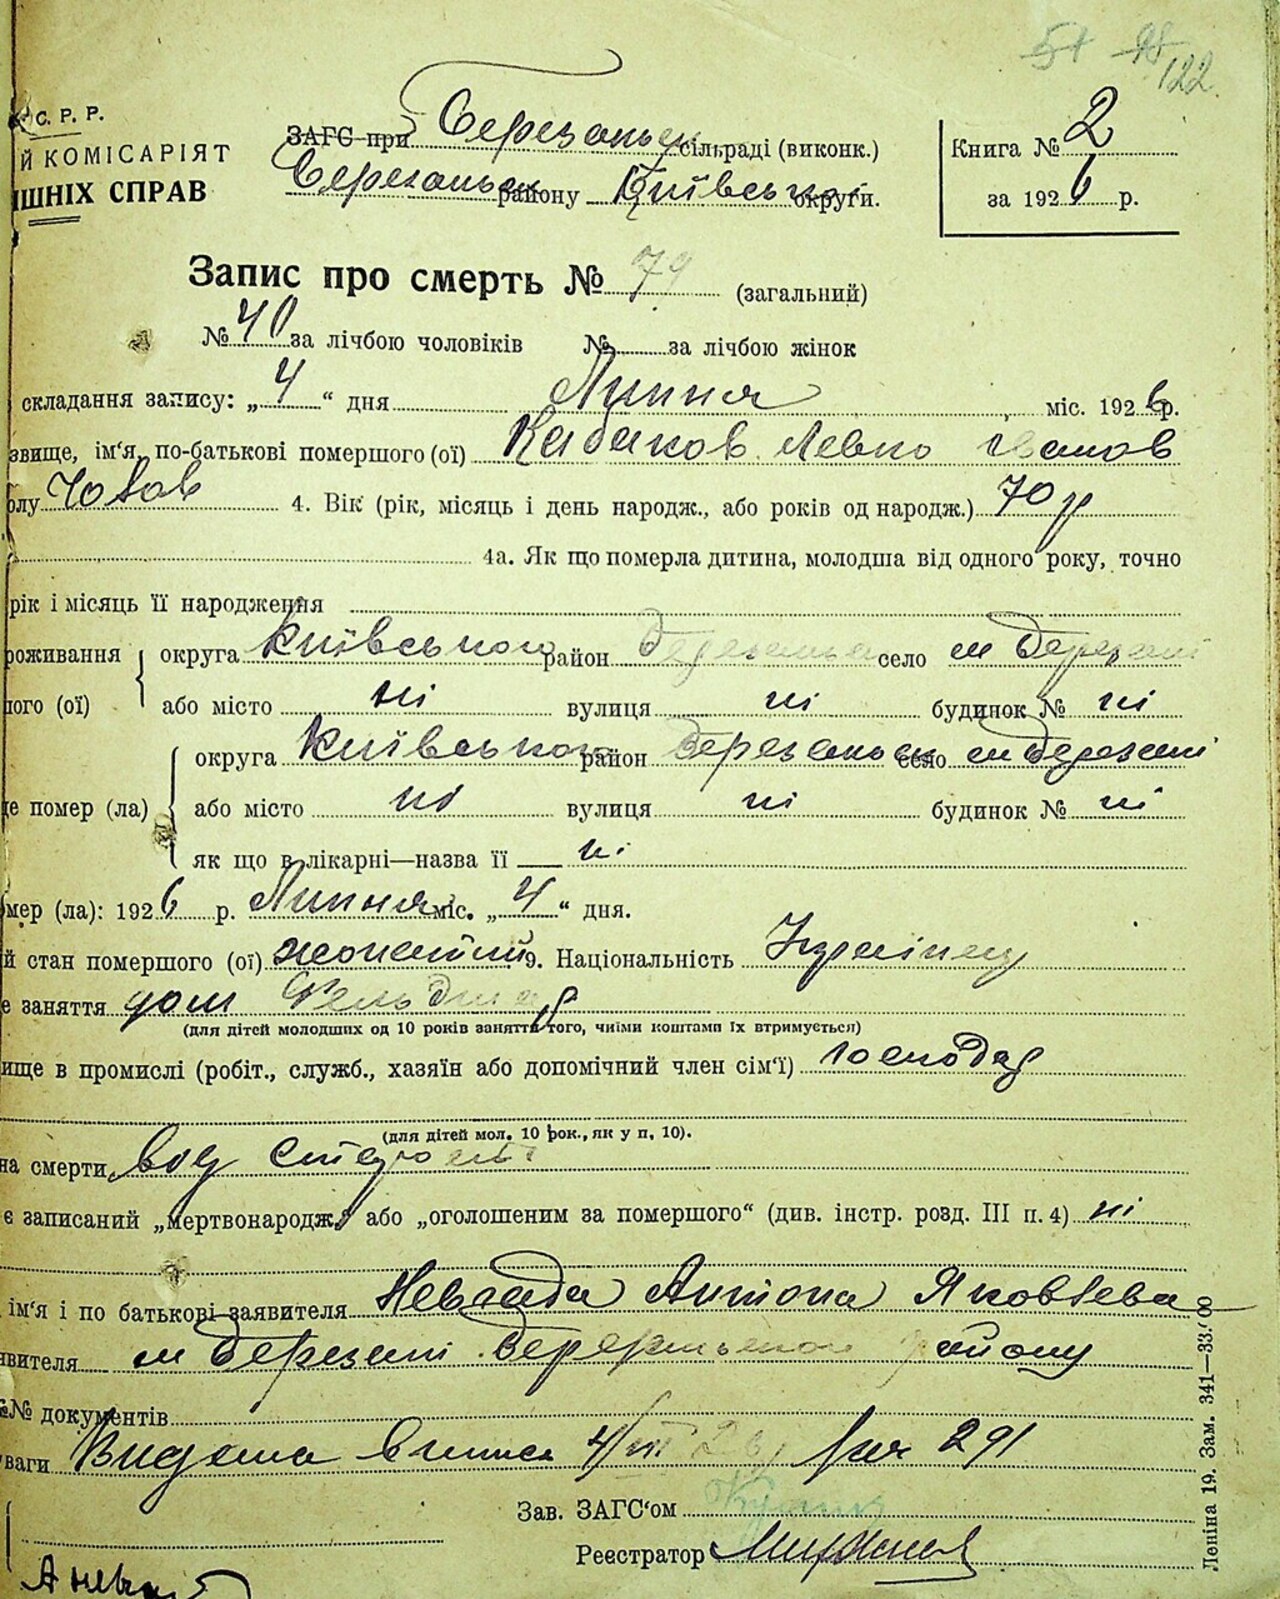 51 98
122
С. Р. Р.
Й КОМІСАРІЯТ
ІШНІХ СПРАВ
ЗАГС при Березанськ сільраді (виконк.)
Березанськ району Київської округи.
Книга № 2
за 1926 р.
Запис про смерть № 79 (загальний)
№ 40 за лічбою чоловіків № за лічбою жінок
складання запису: „4“ дня Липня міс. 1926 р.
звище, ім‘я, по-батькові помершого (ої) Кабаков Левко Іванов
олу Чолов 4. Вік (рік, місяць і день народж., або років од народж.) 70 р
4а. Як що померла дитина, молодша від одного року, точно
рік і місяць її народження
роживання округа Київського район Березанськ село м Березані
ного (ої) або місто ні вулиця ні будинок № ні
округа Київського район Березанськ село м Березані
е помер (ла) або місто ні вулиця ні будинок № ні
як що в лікарні—назва її ні
мер (ла): 1926 р. Липня міс. „4“ дня.
й стан помершого (ої) жонатий 9. Національність Українец
е заняття дом
(для дітей молодших од 10 років заняття того, чиїми коштами їх втримується)
ище в промислі (робіт., служб., хазяїн або допомічний член сім‘ї) господар
(для дітей мол. 10 рок., як у п. 10).
на смерти від старости
є записаний „мертвонародж.“ або „оголошеним за помершого“ (див. інстр. розд. III п. 4) ні
ім‘я і по батькові заявителя Невгада Антона Яковлева
явителя м Березані Березанського району
№№ документів
ваги Видана виписа 4/VII 26 291
Зав. ЗАГС‘ом
Реєстратор
Леніна 19. Зам. 341—33.